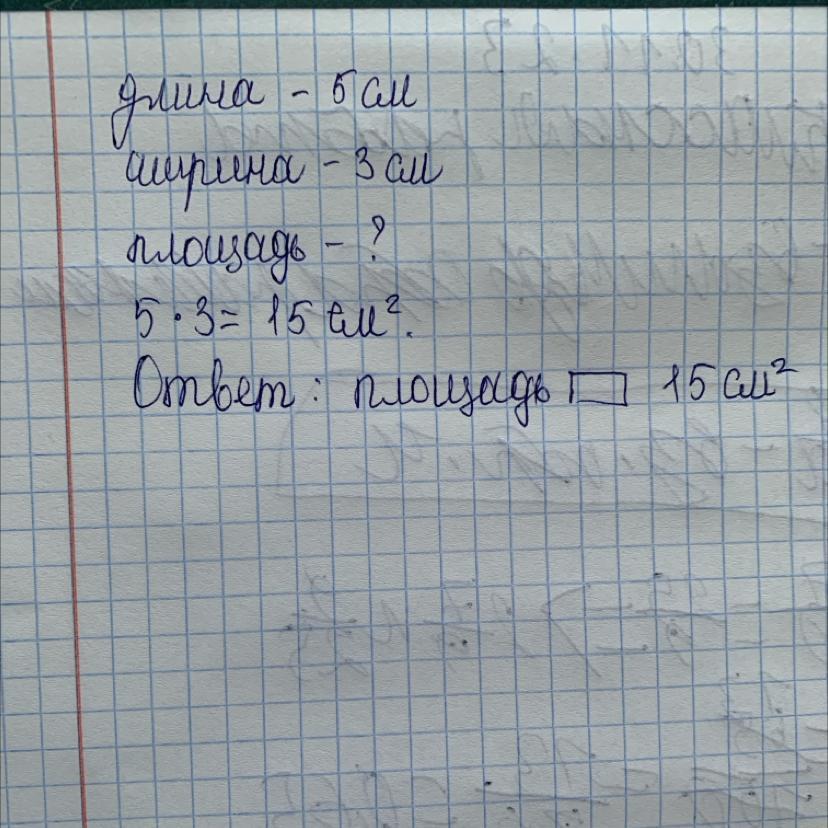 длина - 5 см
ширина - 3 см
площадь - ?
5 · 3 = 15 см².
Ответ: площадь ▭ 15 см²